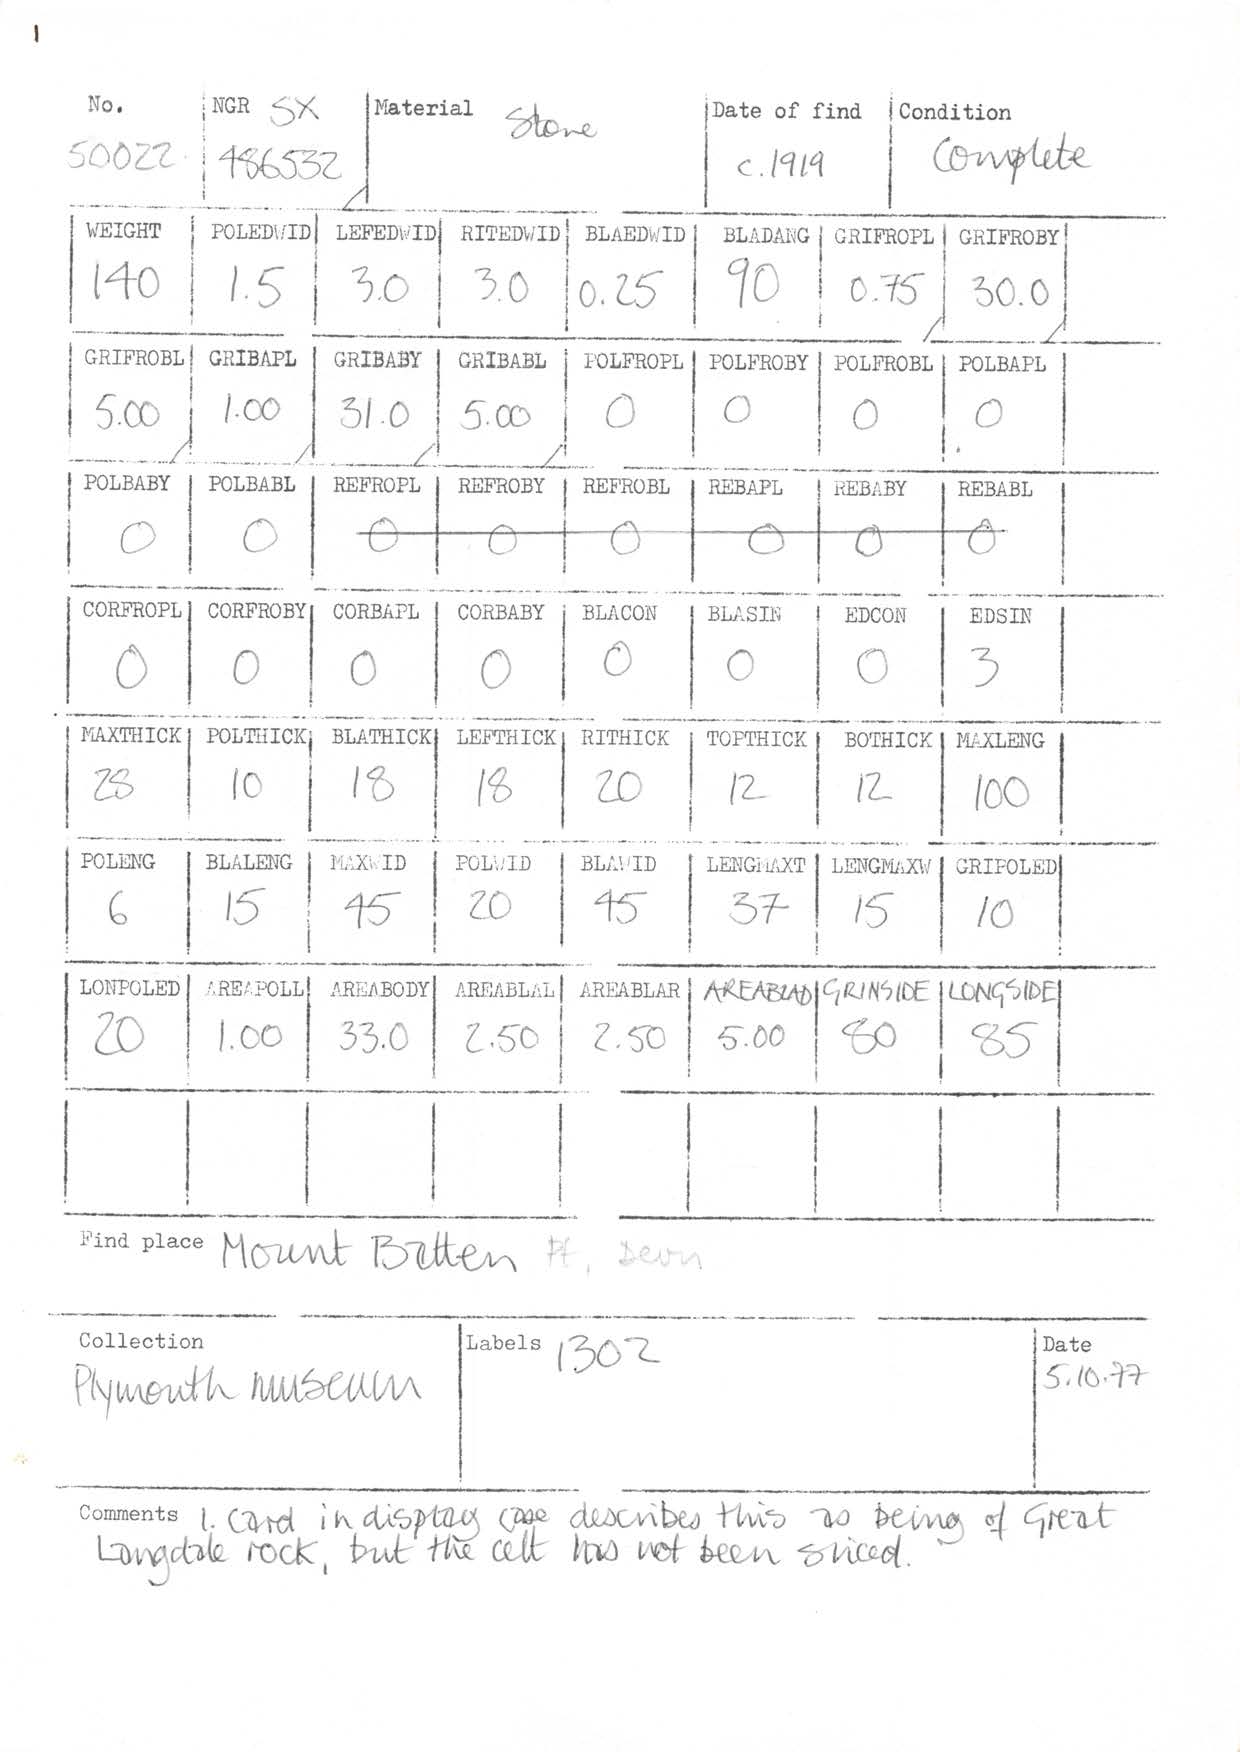 1
No. NGR SX Material Stone Date of find Condition
S0022 486532 c.1919 Complete
WEIGHT POLEDWID LEFEDWID RITEDWID BLAEDWID BLADANG GRIFROPL GRIFROBY
140 1.5 3.0 3.0 0.25 90 0.75 30.0
GRIFROBL GRIBAPL GRIBABY GRIBABL POLFROPL POLFROBY POLFROBL POLBAPL
5.00 1.00 31.0 5.00 0 0 0 0
POLBABY POLBABL REFROPL REFROBY REFROBL REBAPL REBABY REBABL
0 0 0 0 0 0 0 0
CORFROPL CORFROBY CORBAPL CORBABY BLACON BLASIN EDCON EDSIN
0 0 0 0 0 0 0 3
MAXTHICK POLTHICK BLATHICK LEFTHICK RITHICK TOPTHICK BOTHICK MAXLENG
28 10 18 18 20 12 12 100
POLENG BLALENG MAXWID POLWID BLAWID LENGMAXT LENGMAXW GRIPOLED
6 15 45 20 45 37 15 10
LONPOLED AREAPOLL AREABODY AREABLAL AREABLAR AREABLAD GRINSIDE LONGSIDE
20 1.00 33.0 2.50 2.50 5.00 80 85
Find place Mount Batten Pt, Devon
Collection Labels 1302 Date
Plymouth museum 5.10.77
Comments 1. Card in display case describes this as being of Great
Langdale rock, but the celt has not been sliced.